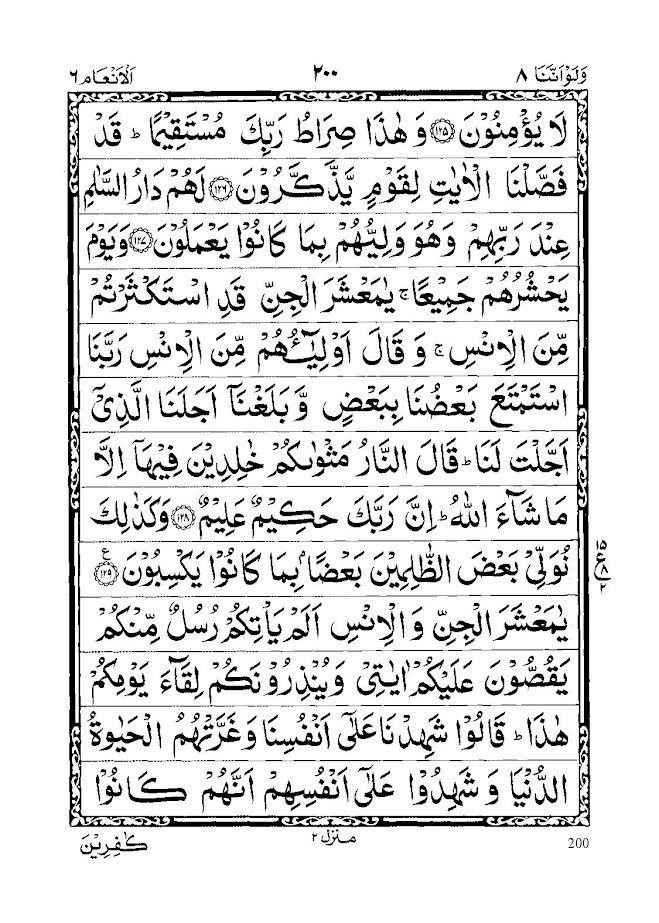 وَلَوْاَنَّنَا ٨ ٢٠٠ اَلْاَنْعَام ٦
لَا يُؤْمِنُوْنَ ﴿١٢٥﴾ وَ هٰذَا صِرَاطُ رَبِّكَ مُسْتَقِيْمًا ؕ قَدْ
فَصَّلْنَا الْاٰيٰتِ لِقَوْمٍ يَّذَّكَّرُوْنَ ﴿١٢٦﴾ لَهُمْ دَارُ السَّلٰمِ
عِنْدَ رَبِّهِمْ وَهُوَ وَلِيُّهُمْ بِمَا كَانُوْا يَعْمَلُوْنَ ﴿١٢٧﴾ وَيَوْمَ
يَحْشُرُهُمْ جَمِيْعًا ۚ يٰمَعْشَرَ الْجِنِّ قَدِ اسْتَكْثَرْتُمْ
مِّنَ الْاِنْسِ ۚ وَ قَالَ اَوْلِيٰٓـُٔهُمْ مِّنَ الْاِنْسِ رَبَّنَا
اسْتَمْتَعَ بَعْضُنَا بِبَعْضٍ وَّ بَلَغْنَاۤ اَجَلَنَا الَّذِيْۤ
اَجَّلْتَ لَنَا ؕ قَالَ النَّارُ مَثْوٰىكُمْ خٰلِدِيْنَ فِيْهَاۤ اِلَّا
مَا شَآءَ اللّٰهُ ؕ اِنَّ رَبَّكَ حَكِيْمٌ عَلِيْمٌ ﴿١٢٨﴾ وَكَذٰلِكَ
نُوَلِّيْ بَعْضَ الظّٰلِمِيْنَ بَعْضًۢا بِمَا كَانُوْا يَكْسِبُوْنَ ﴿١٢٩﴾ ع
١٥ ع ٨ ٢
يٰمَعْشَرَ الْجِنِّ وَ الْاِنْسِ اَلَمْ يَاْتِكُمْ رُسُلٌ مِّنْكُمْ
يَقُصُّوْنَ عَلَيْكُمْ اٰيٰتِيْ وَيُنْذِرُوْنَكُمْ لِقَآءَ يَوْمِكُمْ
هٰذَا ؕ قَالُوْا شَهِدْنَا عَلٰۤى اَنْفُسِنَا وَغَرَّتْهُمُ الْحَيٰوةُ
الدُّنْيَا وَ شَهِدُوْا عَلٰۤى اَنْفُسِهِمْ اَنَّهُمْ كَانُوْا
كٰفِرِيْنَ منزل ٢ 200